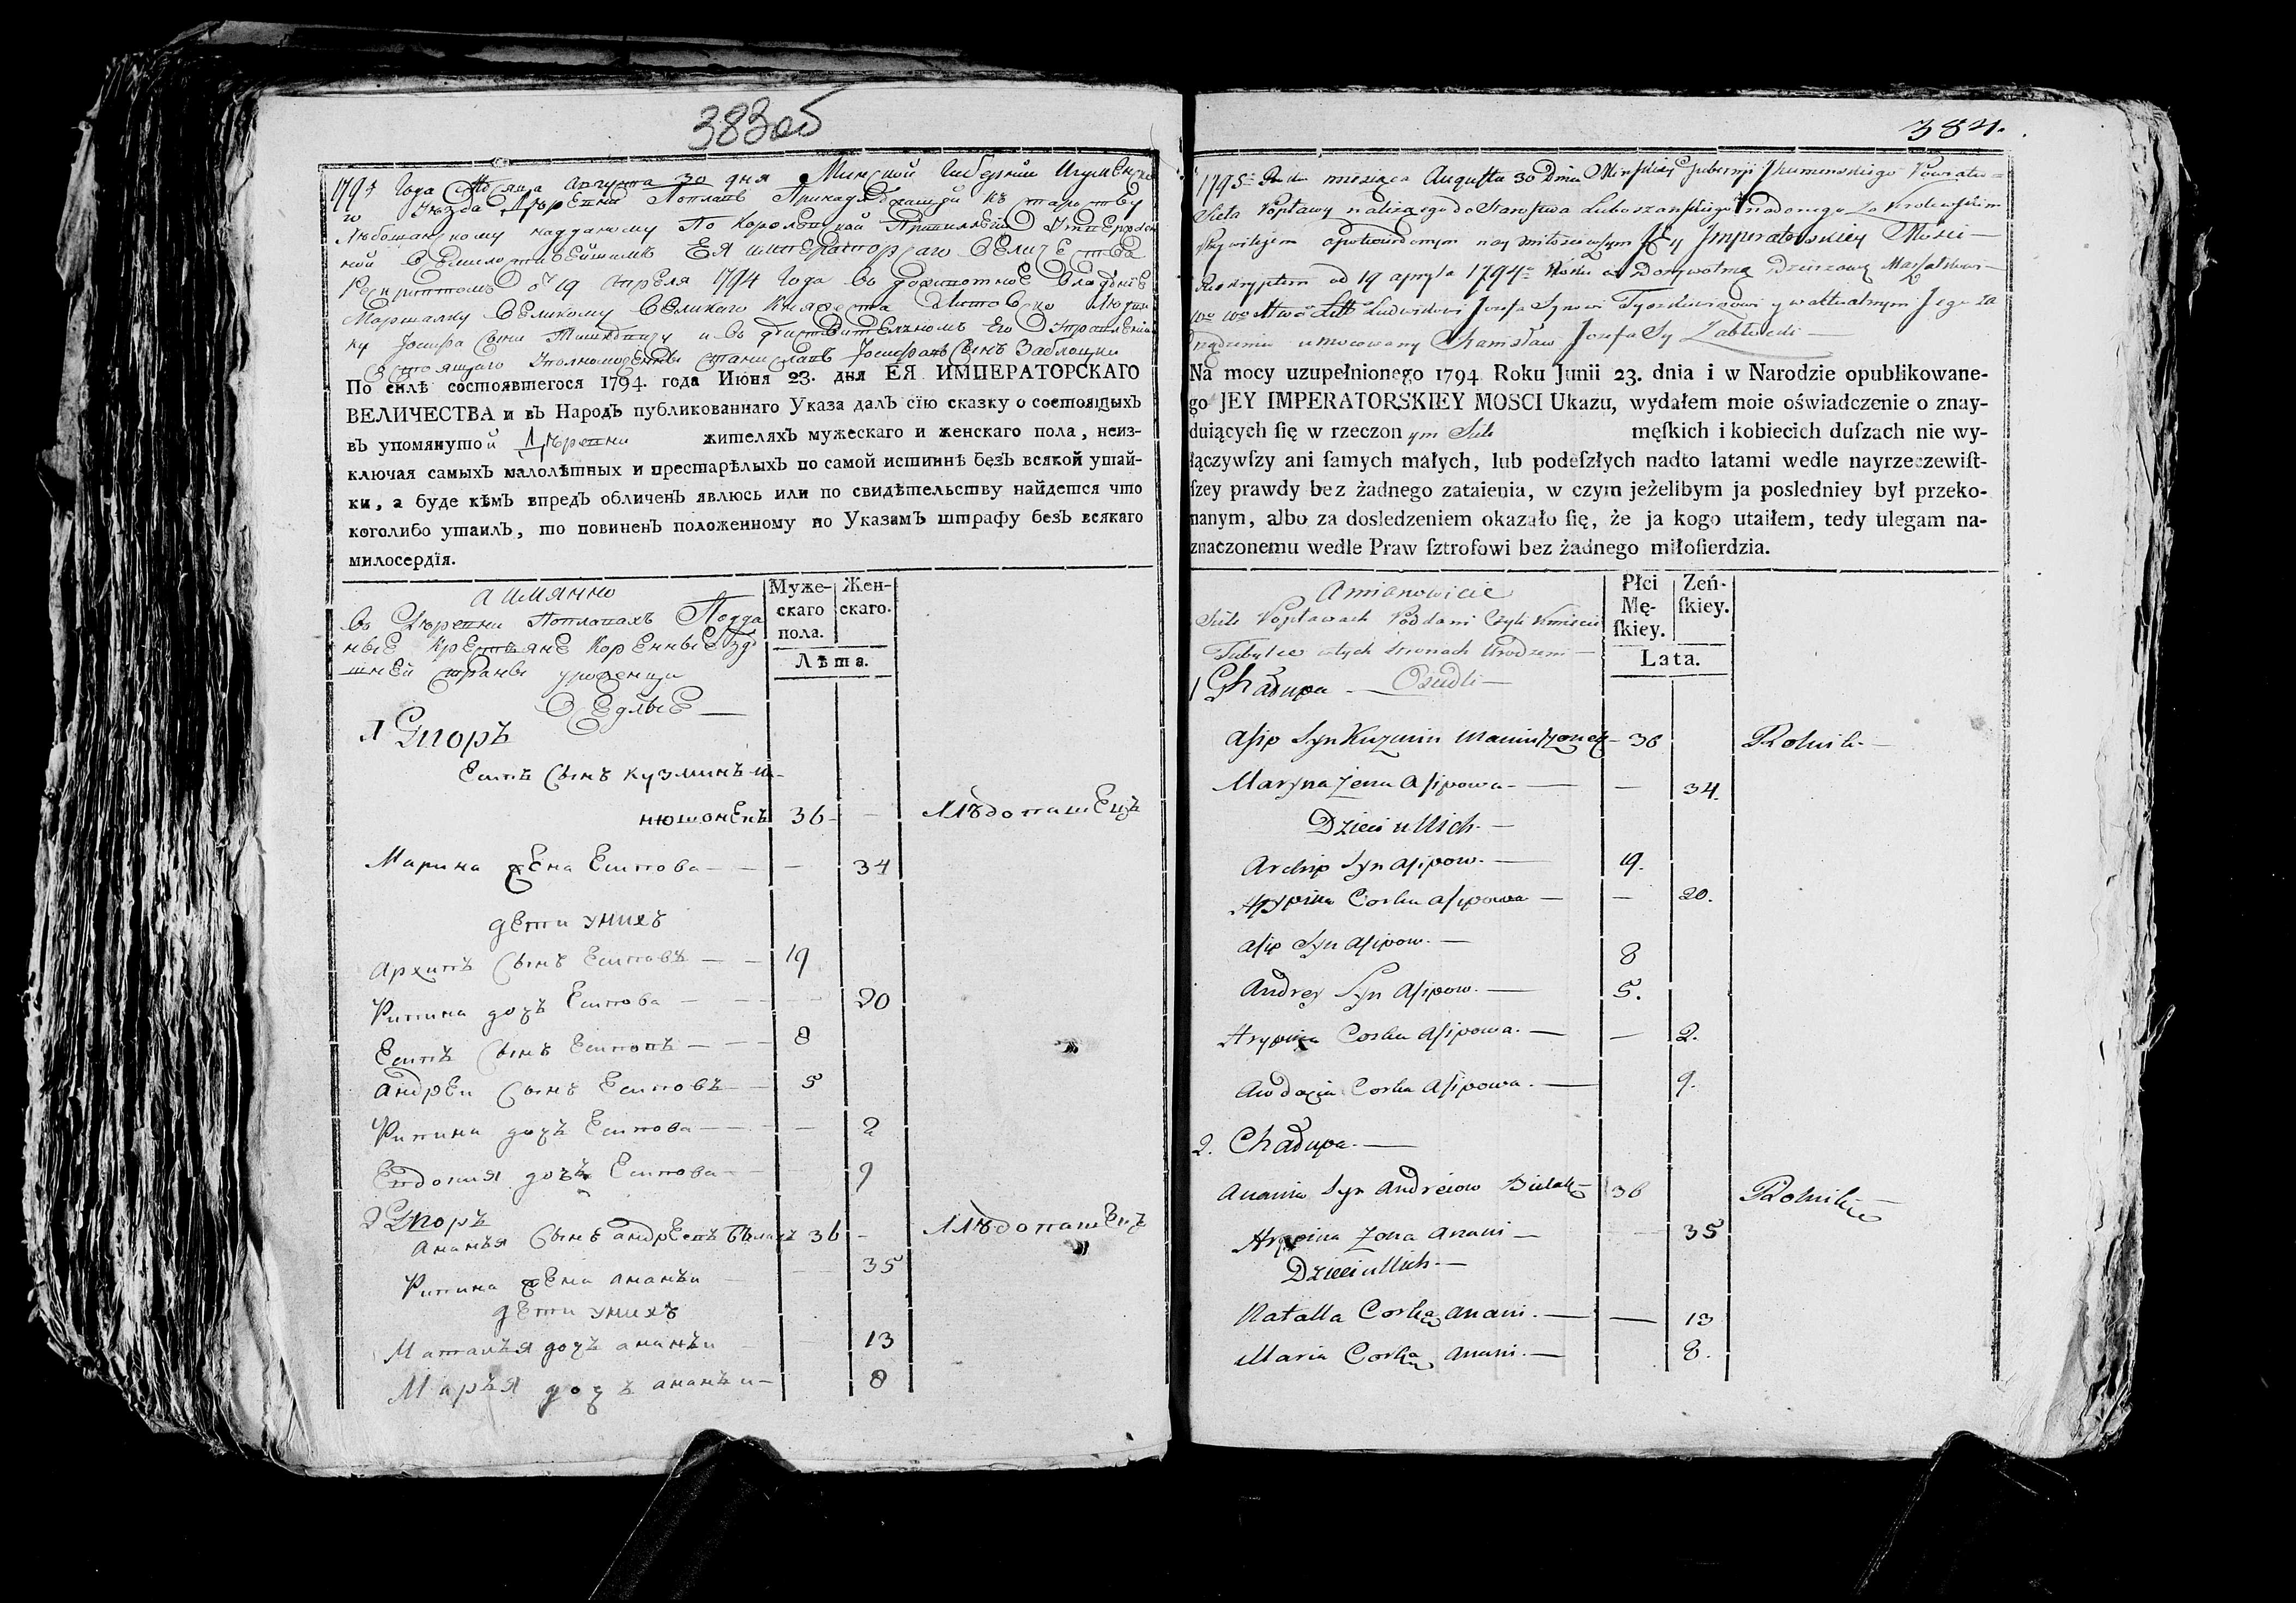 383об
1795 Года Месяца Августа 30 дня Минской Губернии Игуменско
го уезда Деревни Поплавъ Принадлежащей къ староству
Любошанскому наданному По Королевской Привилегии Утвержден
ной всемилостивейшимъ ЕЯ императорскаго величества
Рескриптомъ от 19 Апреля 1794 Года въ доживотное владение
Маршалку великому великаго Княжества Литовско Людви
ку Іосифа сыну Тишкевичу и въ действителномъ Его Управлении
состоящаго Уполномоченны Станиславъ Іосифовъ сынъ Заблоцки
По силѣ состоявшегося 1794. года Июня 23. дня ЕЯ ИМПЕРАТОРСКАГО
ВЕЛИЧЕСТВА и въ Народъ публикованнаго Указа далъ сїю сказку о состоящыхъ
въ упомянутой Деревни жителяхъ мужескаго и женскаго пола, неиз-
ключая самыхъ малолѣтныхъ и престарѣлыхъ по самой истиннѣ безъ всякой утай-
ки, а буде кѣмъ впредъ обличенъ явлюсь или по свидѣтельству найдется что
коголибо утаилъ, то повиненъ положенному по Указамъ штрафу безъ всякаго
милосердїя.
а имянно
въ Деревни Поплавахъ Подда
ные крестьяне коренные зде
шней страны уроженци
Оседлые —
Муже-
скаго
пола.
Жен-
скаго.
Лѣта.
1 Дворъ
Есипъ сынъ кузминъ ма-
нюшонекъ 36 — Хлѣбопашецъ
Марина жена Есипова — — 34
дети у нихъ
Архипъ сынъ Есиповъ — — 19
Рипина дочъ Есипова — — 20
Есипъ сынъ Есиповъ — — 8
Андреи сынъ Есиповъ — 5
Рипина дочъ Есипова — — 2
Евдокия дочъ Есипова — 9
2 Дворъ
Ананья сынъ андреевъ Белакъ 36 — Хлѣбопашецъ
Рипина жена ананьи — 35
дети у нихъ
Наталья дочъ ананьи — 13
Марья дочъ ананьи — 8
384.
1795 Roku miesiąca Augusta 30 Dnia Minskiey Gubernji Jhumenskiego Powiatu
Sieła Popławy należącego do Starostwa Luboszanskiego nadanego za Krolewskim
Przywilejem apotwierdzonym nay miłościwszym Jey Imperatorskiey Mości —
Reskryptem od 19 apryla 1794 Roku w Dożywotnią Dzierżawę Marszałkowi —
Wo Wo Xtwa Litt Ludwikowi Jozefa Synowi Tyszkiewiczowi y w aktualnym Jego za
rządzeniu umocowany Stanisław Jozefa Sy Zabłocki —
Na mocy uzupełnionego 1794 Roku Junii 23. dnia i w Narodzie opublikowane-
go JEY IMPERATORSKIEY MOSCI Ukazu, wydałem moie oświadczenie o znay-
duiących ſię w rzeczonym Siele męſkich i kobiecich duſzach nie wy-
łączywſzy ani ſamych małych, lub podeſzłych nadto latami wedle nayrzeczewiſt-
ſzey prawdy bez żadnego zataienia, w czym jeżelibym ja posledniey był przeko-
nanym, albo za dosledzeniem okazało ſię, że ja kogo utaiłem, tedy ulegam na-
znaczonemu wedle Praw ſztrofowi bez żadnego miłoſierdzia.
Amianowicie
Siele Popławach Poddani Czyli Kmiecie
Tubylce wtych stronach Urodzeni —
Osiedli —
Płci
Mę-
ſkiey.
Zeń-
ſkiey.
Lata.
1 Chałupa —
Asip Syn Kuzmin Maniuszonek — 36 Rolnik —
Maryna żona Asipowa — — 34.
Dzieci u Nich —
Archip Syn Asipow. — 19.
Arypina Corka Asipowa — — 20.
Asip Syn Asipow. — 8
Andrey Syn Asipow. — 5.
Arypina Corka Asipowa. — — 2.
Awdocia Corka Asipowa. — 9.
2. Chałupa. —
Anania Syn Andreiow Bielak — 36 Rolnik —
Arypina Zona Anani — — 35
Dzieci u Nich —
Natalla Corka Anani. — — 13
Maria Corka Anani. — 8.